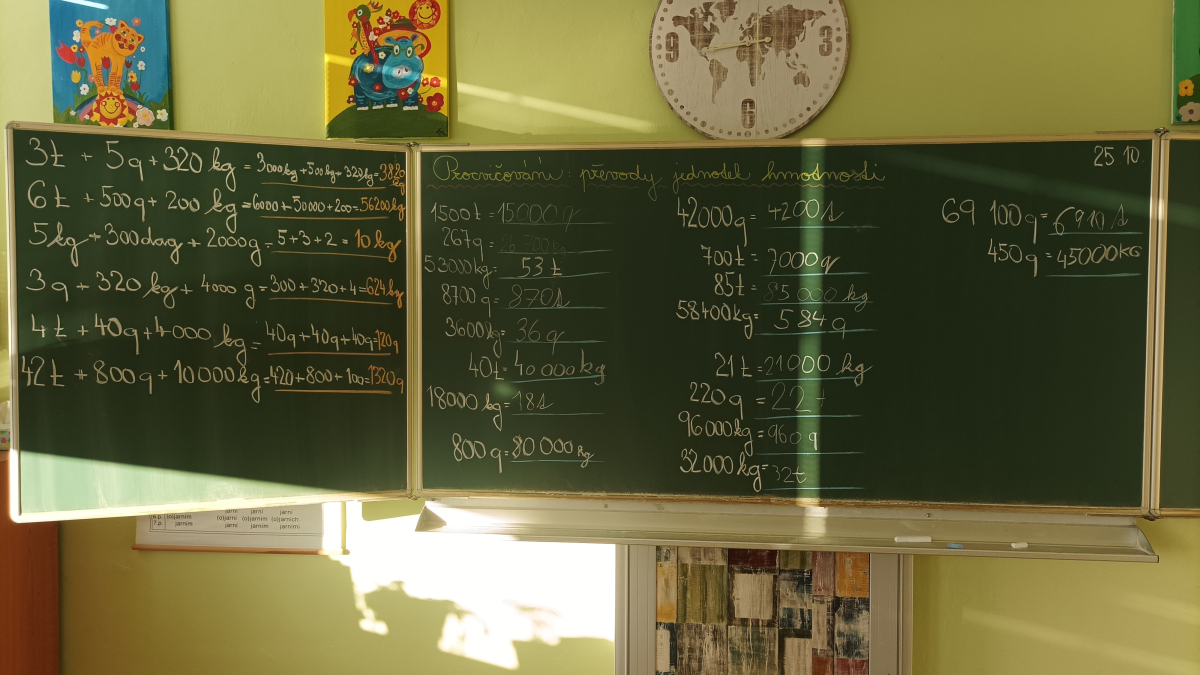 9 3 6
3t + 5q + 320 kg = 3000kg + 500kg + 320kg = 3820 kg
6t + 500q + 200 kg = 6000 + 50000 + 200 = 56200kg
5kg + 300dag + 2000g = 5 + 3 + 2 = 10 kg
3q + 320 kg + 4000 g = 300 + 320 + 4 = 624kg
4t + 40q + 4000 kg = 40q + 40q + 40q = 120q
42t + 800q + 10000kg = 420 + 800 + 100 = 1320q
Procvičování: převody jednotek hmotnosti
25 10
1500t = 15000q
267q = 26 700kg
53000kg = 53 t
8700q = 870t
3600kg = 36 q
40t = 40 000 kg
18000 kg = 18t
800q = 80 000 kg
42000q = 4200t
700t = 7000q
85t = 85 000 kg
58400kg = 584 q
21t = 21000 kg
220q = 22 t
96000kg = 960 q
32000kg = 32t
69 100q = 6910t
450q = 45000KG
(o)jarním jarní (o)jarním (o)jarních
jarním jarní jarním jarními